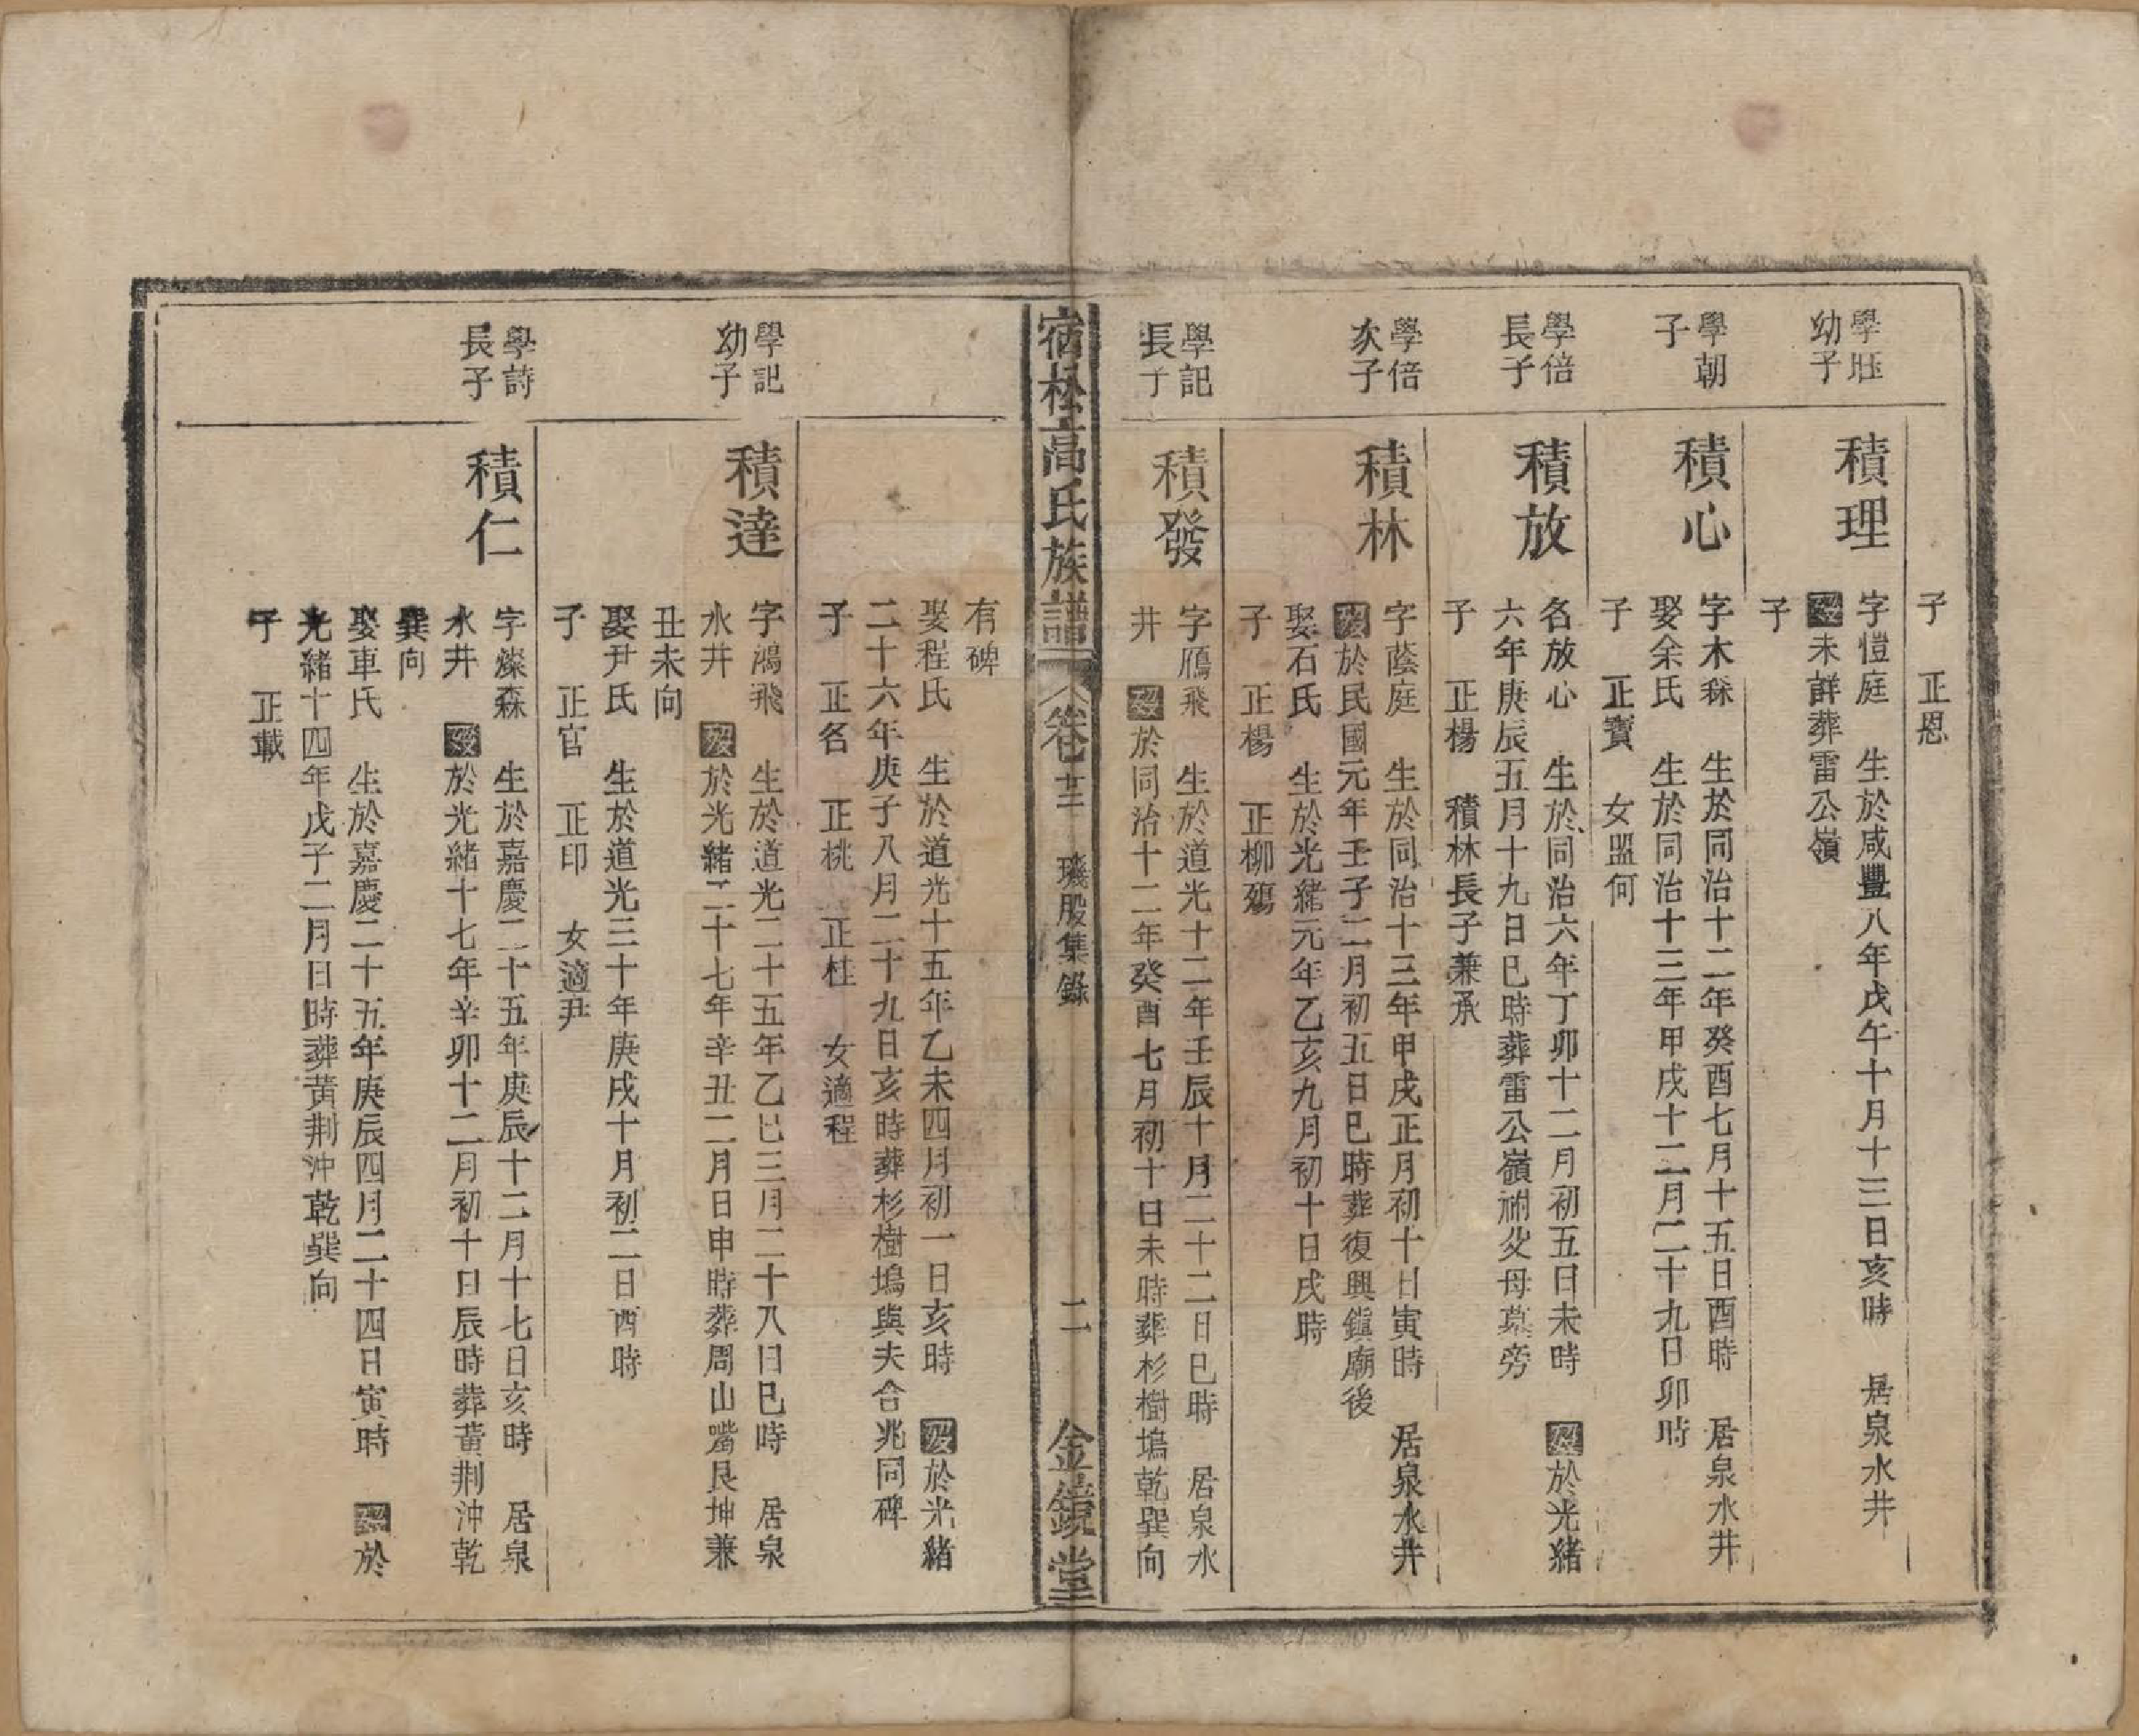 子　正恩
學㽵幼子
積理
字愷庭　生於咸豐八年戊午十月十三日亥時　居泉水井
歿未詳葬雷公嶺
子
學朝子
積心
字木森　生於同治十二年癸酉七月十五日酉時　居泉水井
娶余氏　生於同治十三年甲戌十二月二十九日卯時
子　正寶　女盟何
學倍長子
積放
名放心　生於同治六年丁卯十二月初五日未時　歿於光緒
六年庚辰五月十九日巳時葬雷公嶺祔父母墓旁
子　正楊　積林長子兼承
學倍次子
積林
字蔭庭　生於同治十三年甲戌正月初十日寅時　居泉水井
歿於民國元年壬子二月初五日巳時葬復興鎮廟後
娶石氏　生於光緒元年乙亥九月初十日戌時
子　正楊　正柳殤
學記長子
積發
字鴈飛　生於道光十二年壬辰十月二十二日巳時　居泉水
井　歿於同治十二年癸酉七月初十日未時葬杉樹塢乾巽向
宿松高氏族譜　卷廿二　璣股集錄　二　金鏡堂
有碑
娶程氏　生於道光十五年乙未四月初一日亥時　歿於光緒
二十六年庚子八月二十九日亥時葬杉樹塢與夫合兆同碑
子　正名　正桃　正柱　女適程
學記幼子
積達
字鴻飛　生於道光二十五年乙巳三月二十八日巳時　居泉
水井　歿於光緒二十七年辛丑二月日申時葬周山嘴艮坤兼
丑未向
娶尹氏　生於道光三十年庚戌十月初二日酉時
子　正官　正印　女適尹
學詩長子
積仁
字燦森　生於嘉慶二十五年庚辰十二月十七日亥時　居泉
水井　歿於光緒十七年辛卯十二月初十日辰時葬黃荆沖乾
巽向
娶車氏　生於嘉慶二十五年庚辰四月二十四日寅時　歿於
光緒十四年戊子二月日時葬黃荆沖乾巽向
子　正載